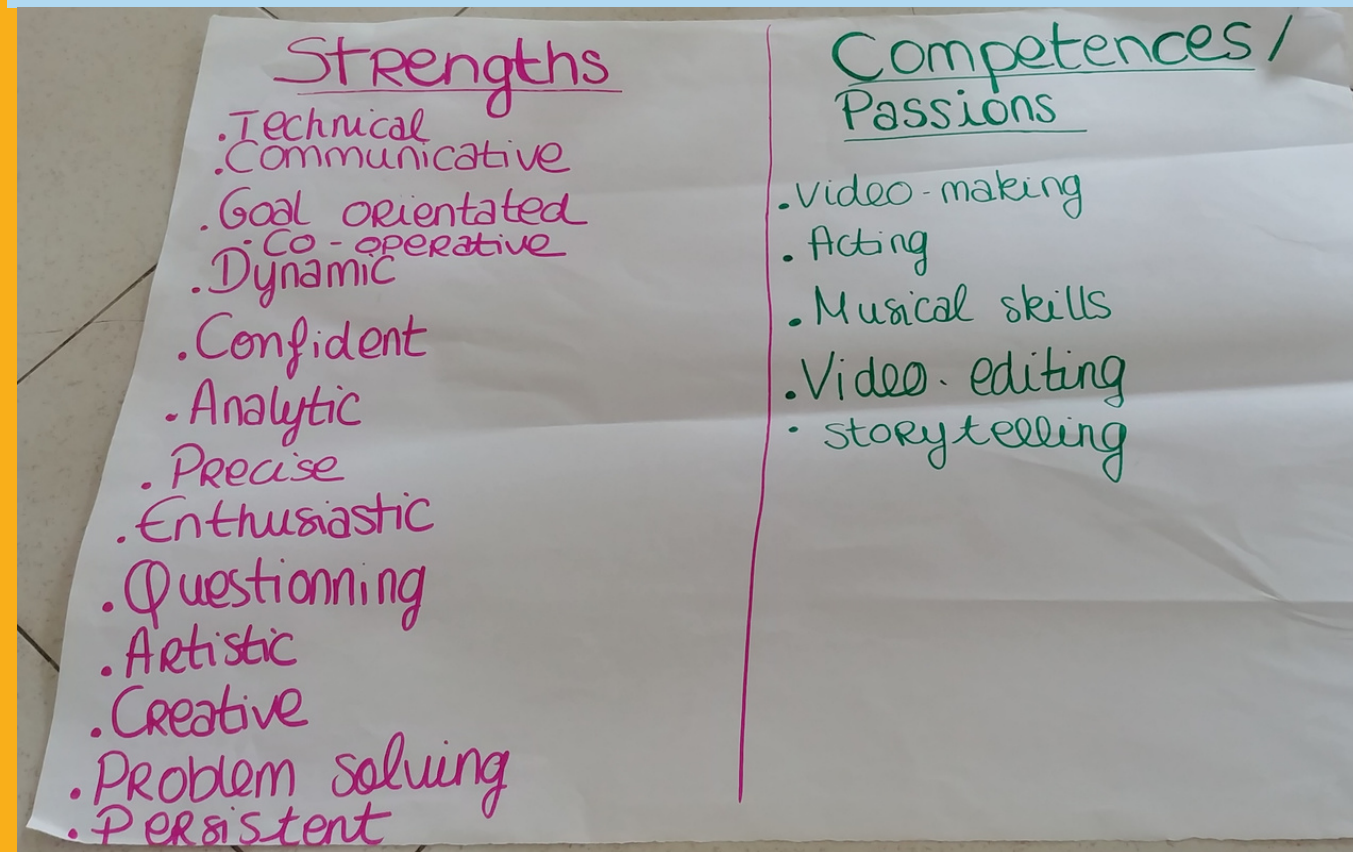 Strengths
.Technical
.Communicative
.Goal orientated
.Co-operative
.Dynamic
.Confident
.Analytic
.Precise
.Enthusiastic
.Questionning
.Artistic
.Creative
.Problem solving
.Persistent
Competences/
Passions
.Video-making
.Acting
.Musical skills
.Video. editing
.storytelling